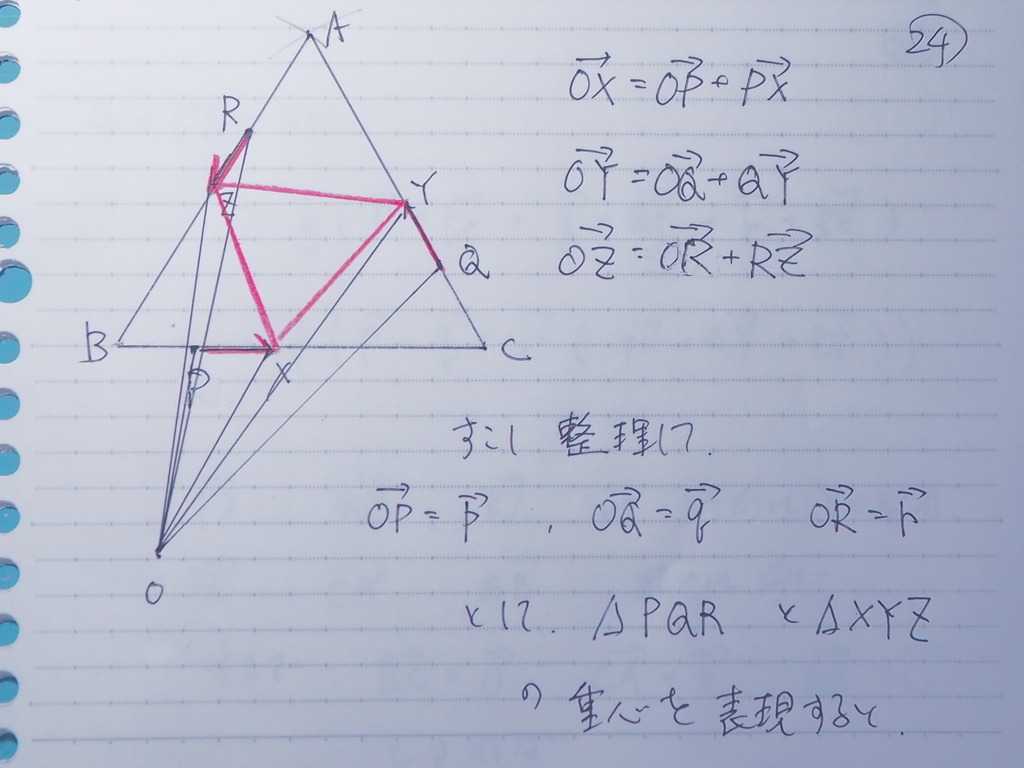 24
A
R
Z
Y
Q
B
P
X
C
O
OX→ = OP→ + PX→
OY→ = OQ→ + QY→
OZ→ = OR→ + RZ→
すこし 整理して.
OP→ = p→ , OQ→ = q→ OR→ = r→
として. △PQR と △XYZ
の 重心を 表現すると.